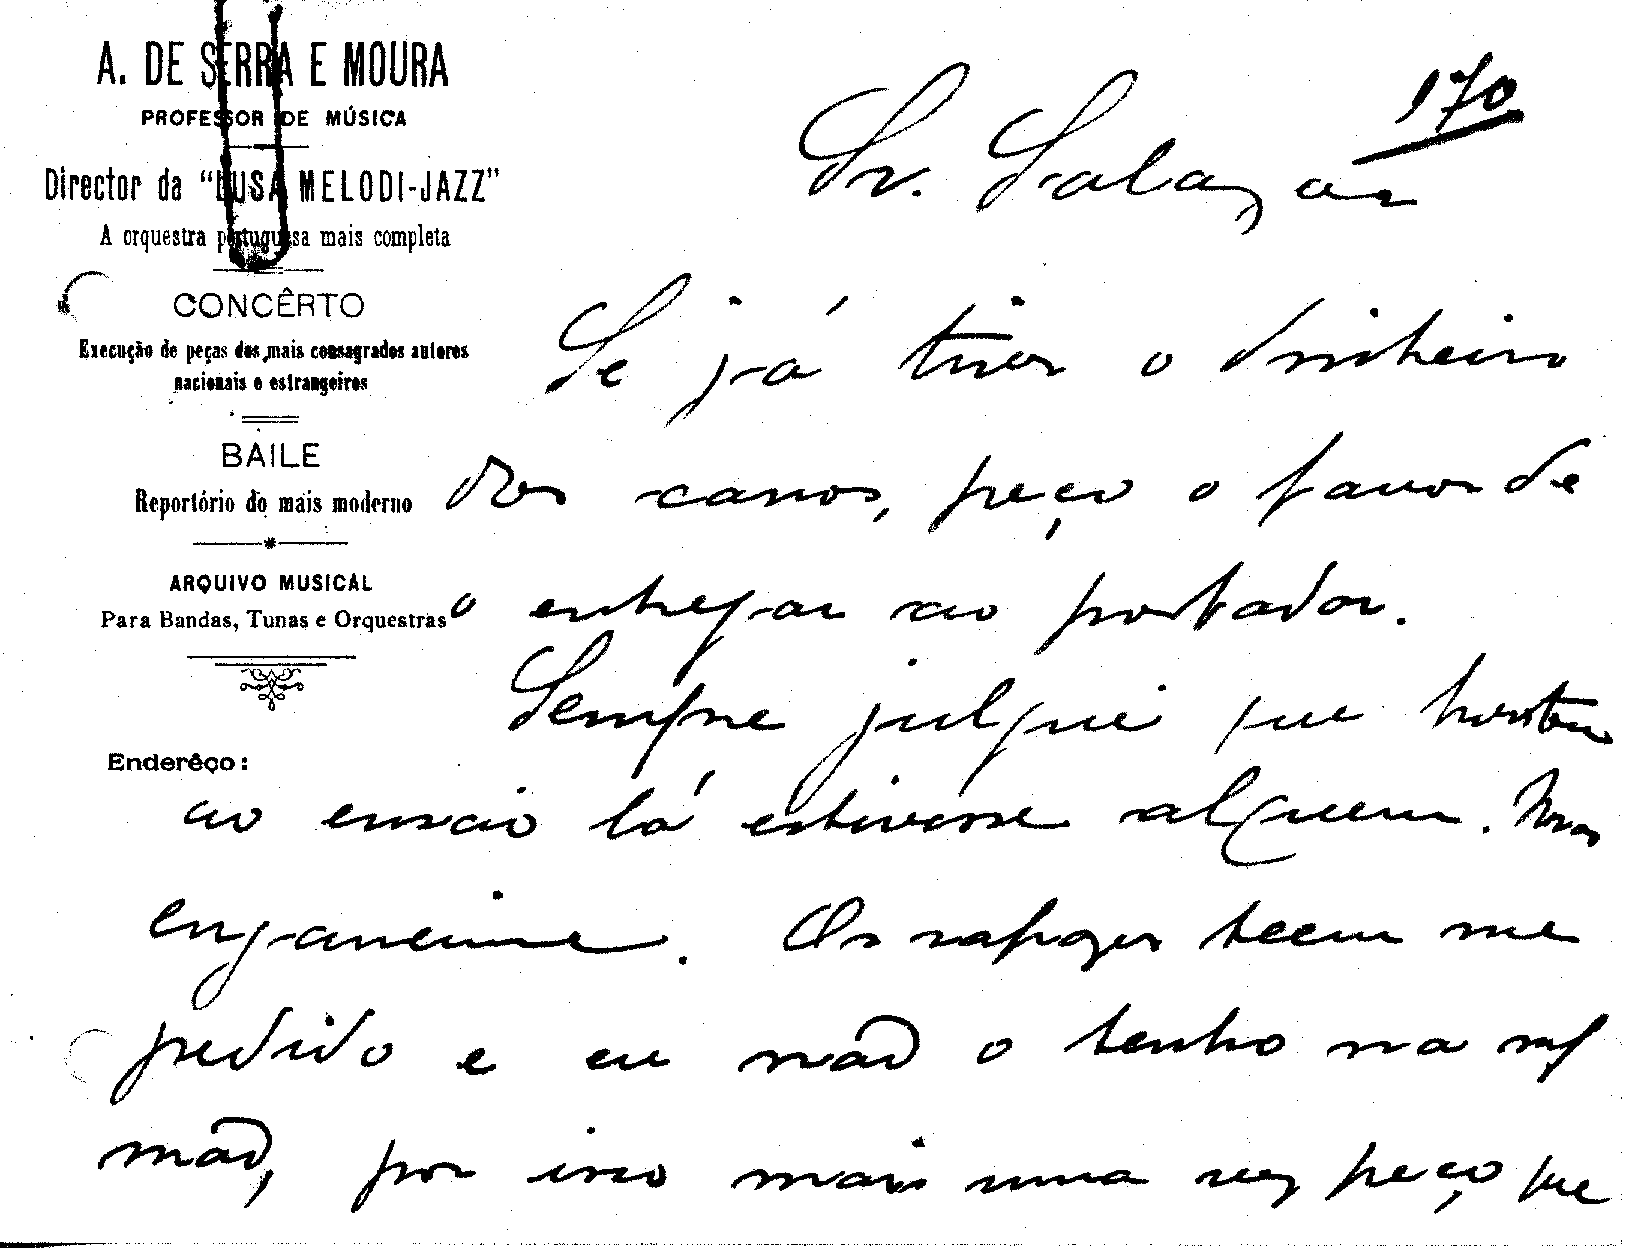 A. DE SERRA E MOURA
PROFESSOR DE MÚSICA
Director da “LUSA MELODI-JAZZ”
A orquestra portuguesa mais completa
CONCÊRTO
Execução de peças dos mais consagrados autores
nacionais e estrangeiros
BAILE
Reportório do mais moderno
ARQUIVO MUSICAL
Para Bandas, Tunas e Orquestras
Enderêço:
170
Sr. Salazar
Se já tiver o dinheiro
dos carros, peço o favor de
o entregar ao portador.
Sempre julguei que
ao ensaio lá estivesse alguem. Mas
enganeime. Os rapazes teem me
pedido e eu não o tenho na m/
mão, por isso mais uma vez peço que